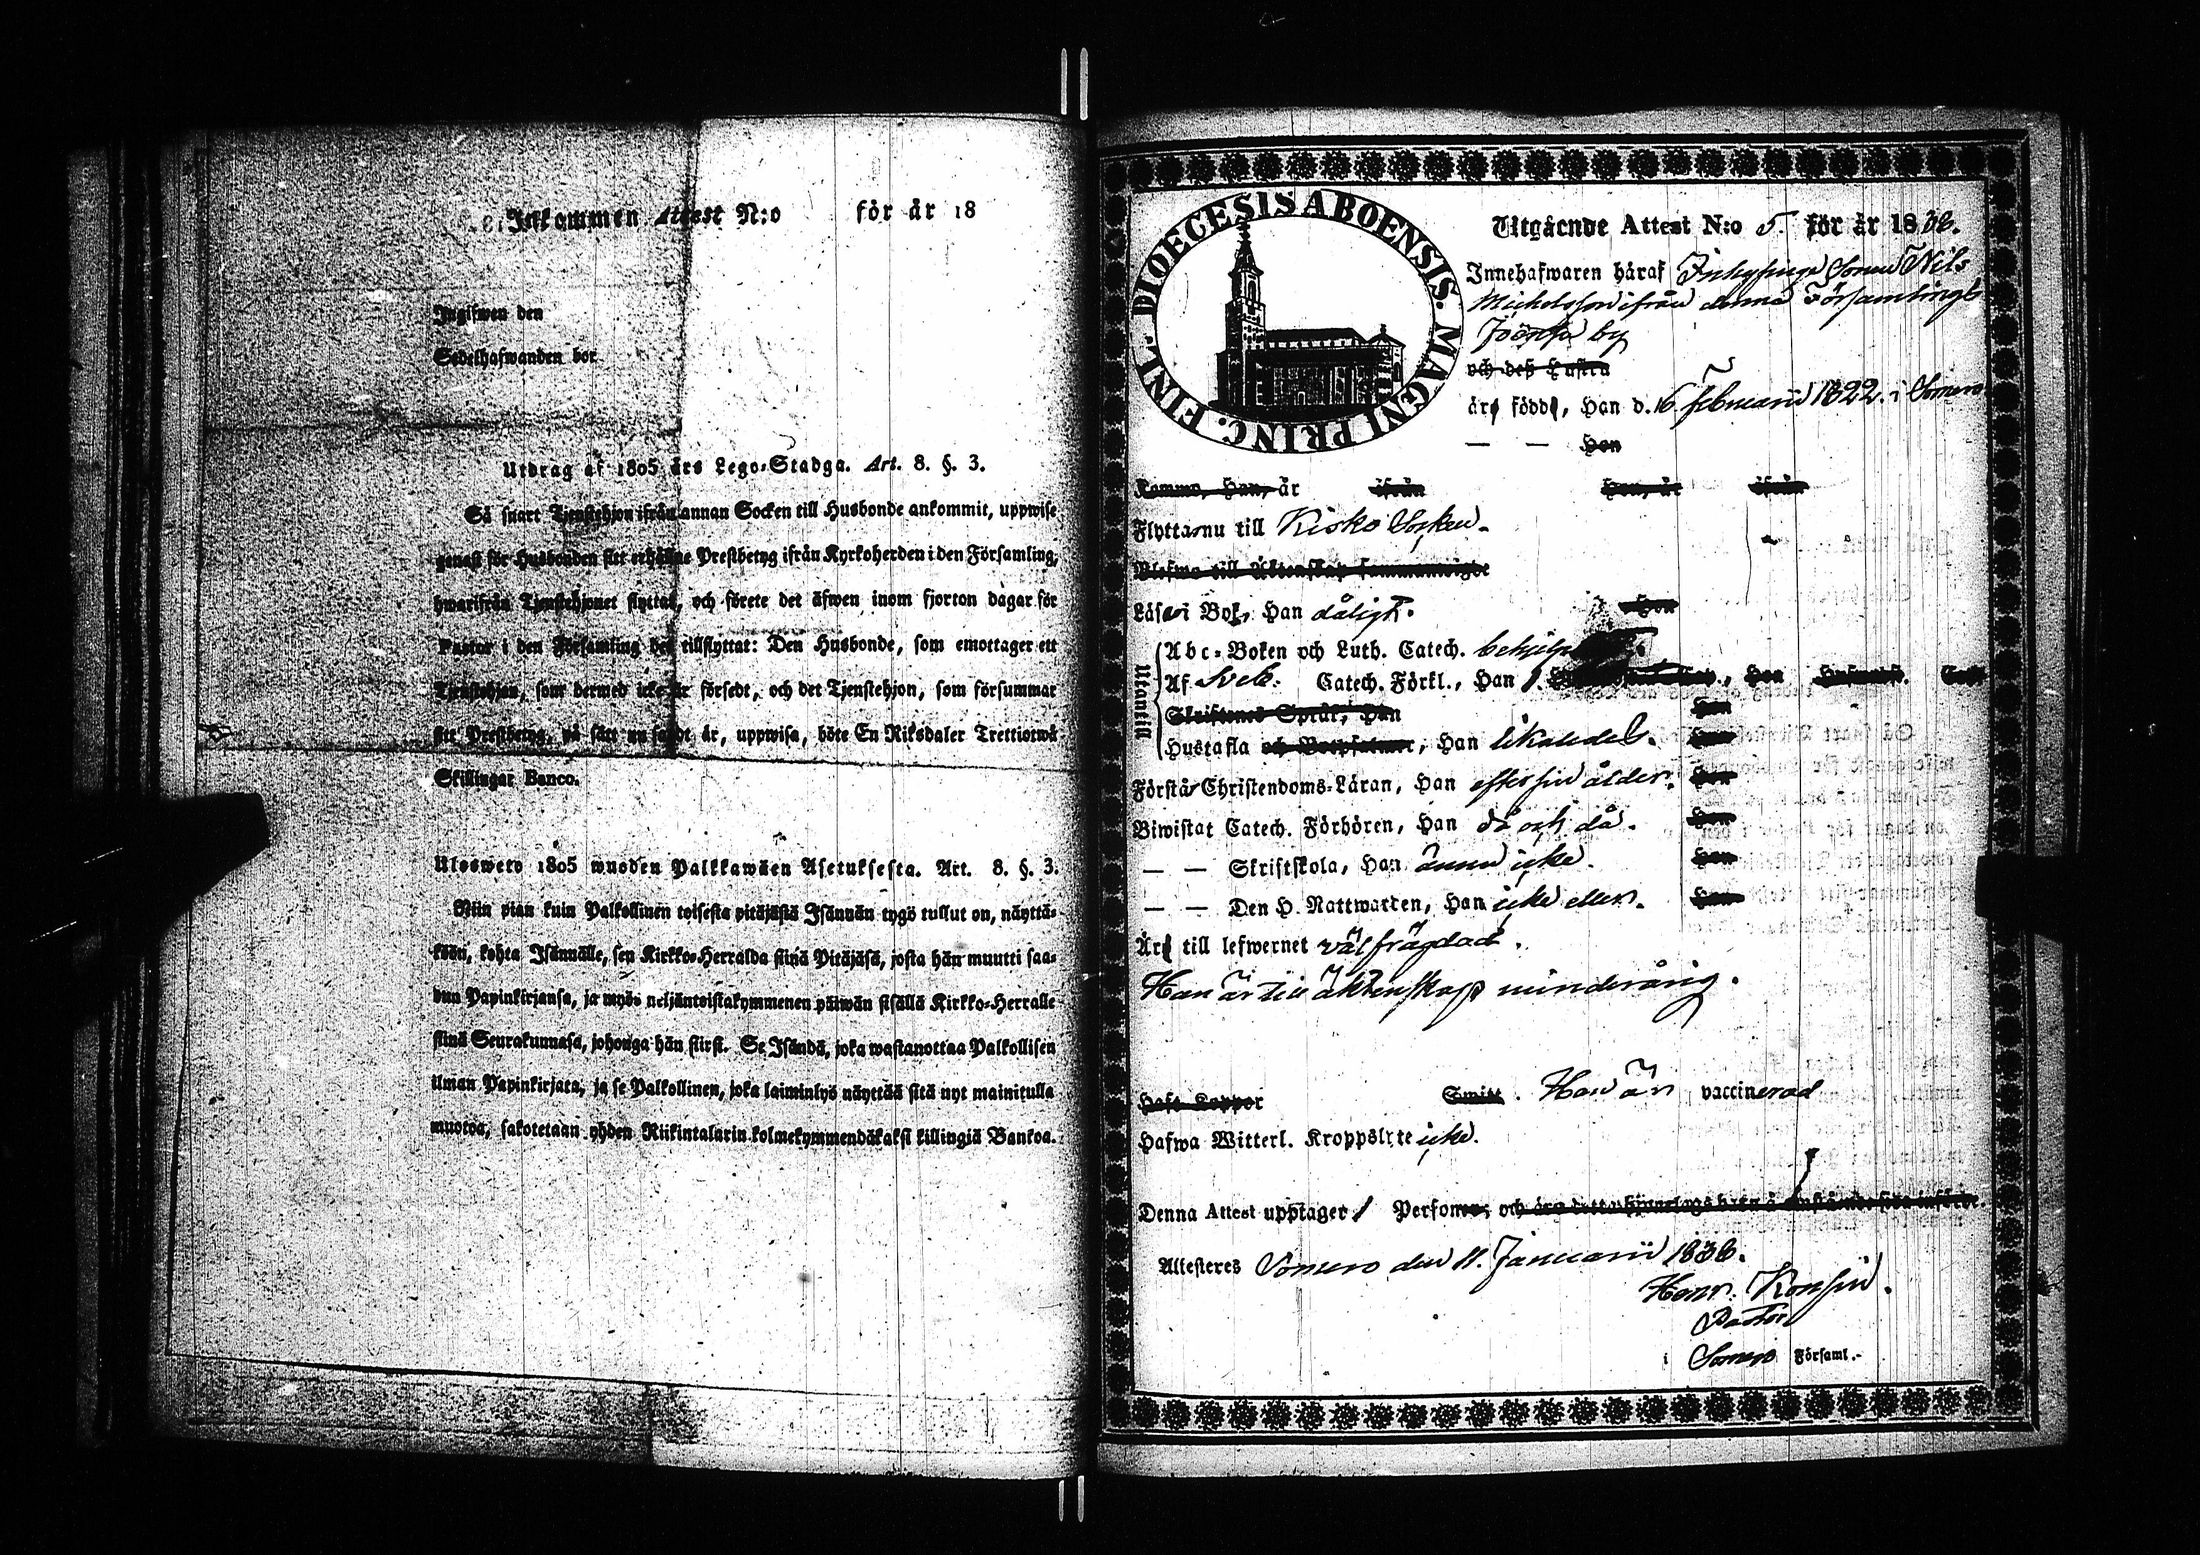 Inkommen Attest N:o för år 18
Ingifwen den
Sedelhafwanden bor
Utdrag af 1805 års Lego-Stadga. Art. 8. §. 3.
Så snart Tjenstehjon ifrån annan Socken till Husbonde ankommit, uppwise
genast för Husbonden sitt erhållne Prestbetyg ifrån Kyrkoherden i den Församling,
hwarifrån Tjenstehjonet flyttat, och förete det äfwen inom fjorton dagar för
Pastor i den Församling det tillflyttat: Den Husbonde, som emottager ett
Tjenstehjon, som dermed icke är försedt, och det Tjenstehjon, som försummar
sitt Prestbetyg, på sätt nu sagdt är, uppwisa, böte En Riksdaler Trettiotwå
Skillingar Banco.
Uloswető 1805 wuoden Palkkawäen Asetuksesta. Art. 8. §. 3.
Niin pian kuin Palkollinen toisesta pitäjästä Isännän tygö tullut on, näyttä-
köön, kohta Isännälle, sen Kirkko-Herralda siinä Pitäjäsä, josta hän muutti saa-
dun Papinkirjansa, ja myös neljäntoistakymmenen päiwän sisällä Kirkko-Herralle
siinä Seurakunnasa, johonga hän siirsi. Se Isändä, joka wastanottaa Palkollisen
ilman Papinkirjata, ja se Palkollinen, joka laiminlyö näyttää sitä nyt mainitulla
muotoa, sakotetaan yhden Riikintalarin kolmekymmendäkaksi killingiä Bankoa.
DIOECESIS ABOENSIS. MAGNI PRINC. FINL.
Utgående Attest N:o 5. för år 1836.
Innehafwaren häraf Inhysinge Sonen Nils
Michelsson ifrån denna Församlings
by
och deß Hustru
är född, Han d. 16 Februarii 1822. i Somero
— — Hon
Kommo, Han, är ifrån Hon, är ifrån
Flyttar nu till Kisko Socken.
Blefwo till Äktenskap sammanwigde
Läser i Bok, Han dåligt. Hon
Utantill
Abc-Boken och Luth. Catech.
Af Sveb. Catech. Förkl., Han Hon
Skriftenes Språk, Han Hon
Hustafla och Botpsalmer, Han likaledes. Hon
Förstår Christendoms-Läran, Han efter sin ålder. Hon
Biwistat Catech. Förhören, Han då och då. Hon
— — Skriftskola, Han ännu icke. Hon
— — Den H. Nattwarden, Han icke eller. Hon
Är till lefwernet välfrägdad.
Han är till äktenskap minderårig.
Haft Koppor Smitt. Han är vaccinerad
Hafwa Witterl. Kroppslyte icke.
Denna Attest upptager 1 Person
Attesteres Somero den 11. Januarii 1836.
Henr. Konsin.
Pastor
i Somero Församl.